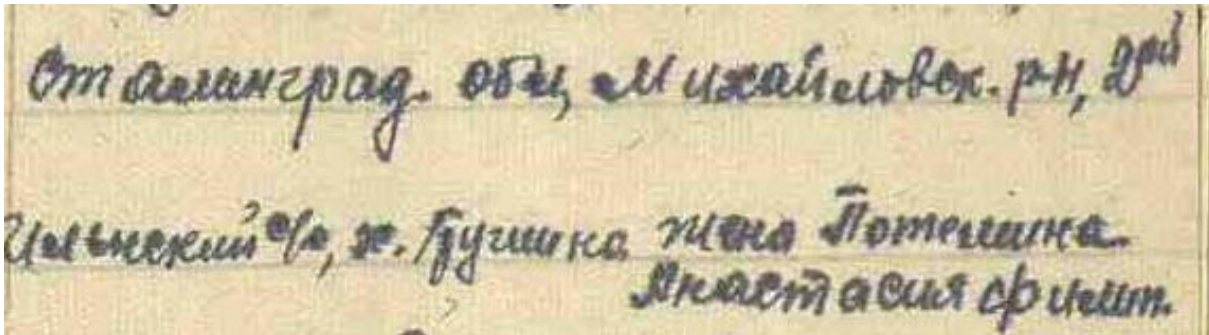 Сталинград. обл, Михайловск. р-н, 2ой
Ильнский с/с, х. Грушина жена Потемина.
Анастасия